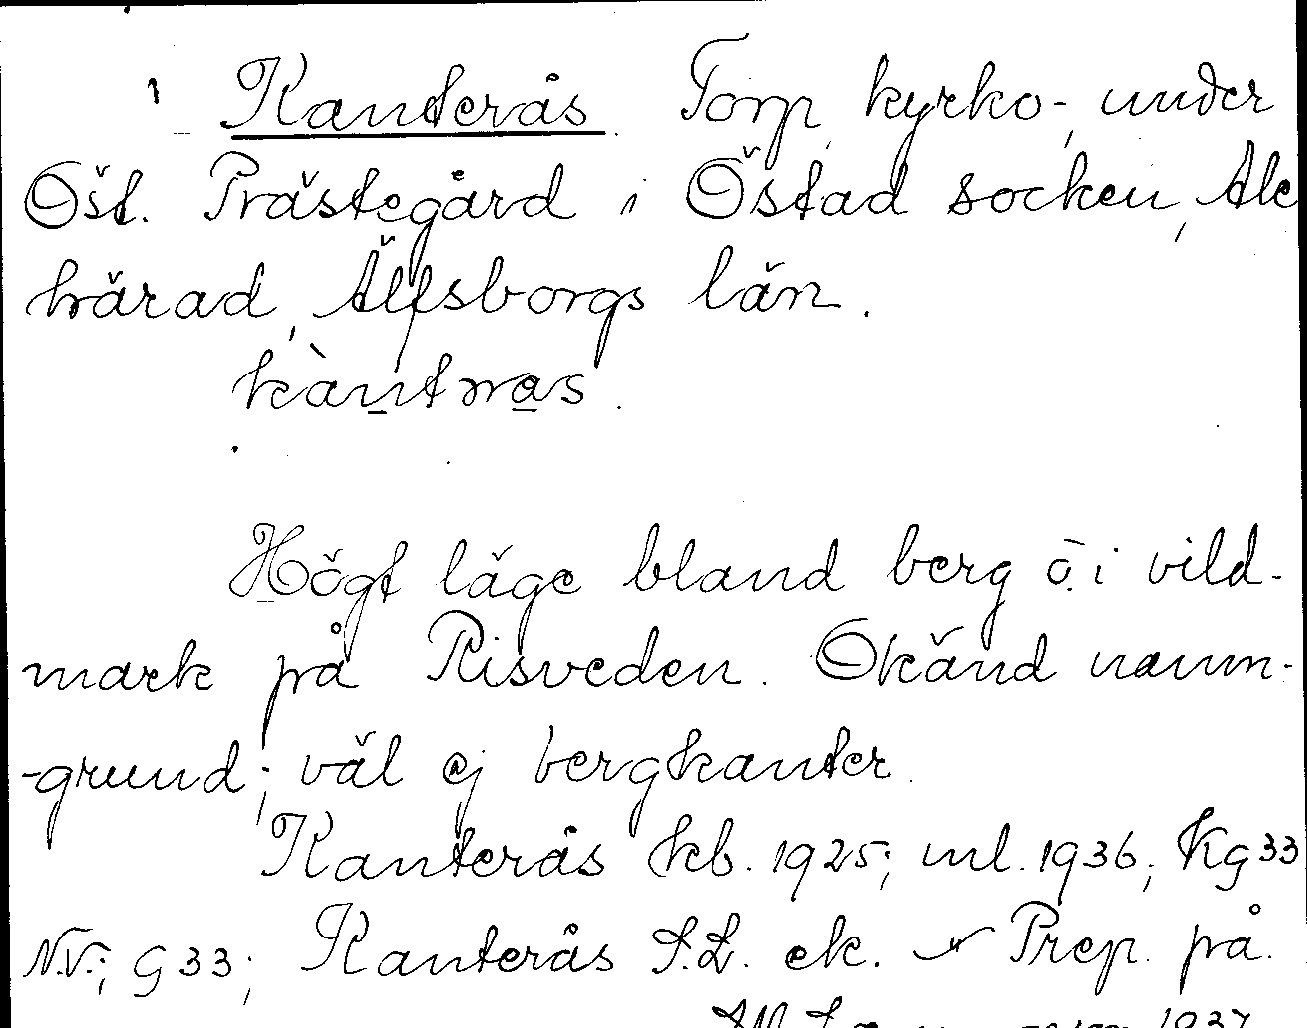 Kanterås. Torp, kyrko-, under
Öst. Prästegård i Östad socken, Ale
härad, Älfsborgs län.
kàntras.
Högt läge bland berg o. i vild-
mark på Risveden. Okänd namn-
-grund; väl ej bergkanter.
Kanterås kb. 1925; ml. 1936; Kg 33
N.V.; G 33; Kanterås S.L. ek. Prep. på.
1937